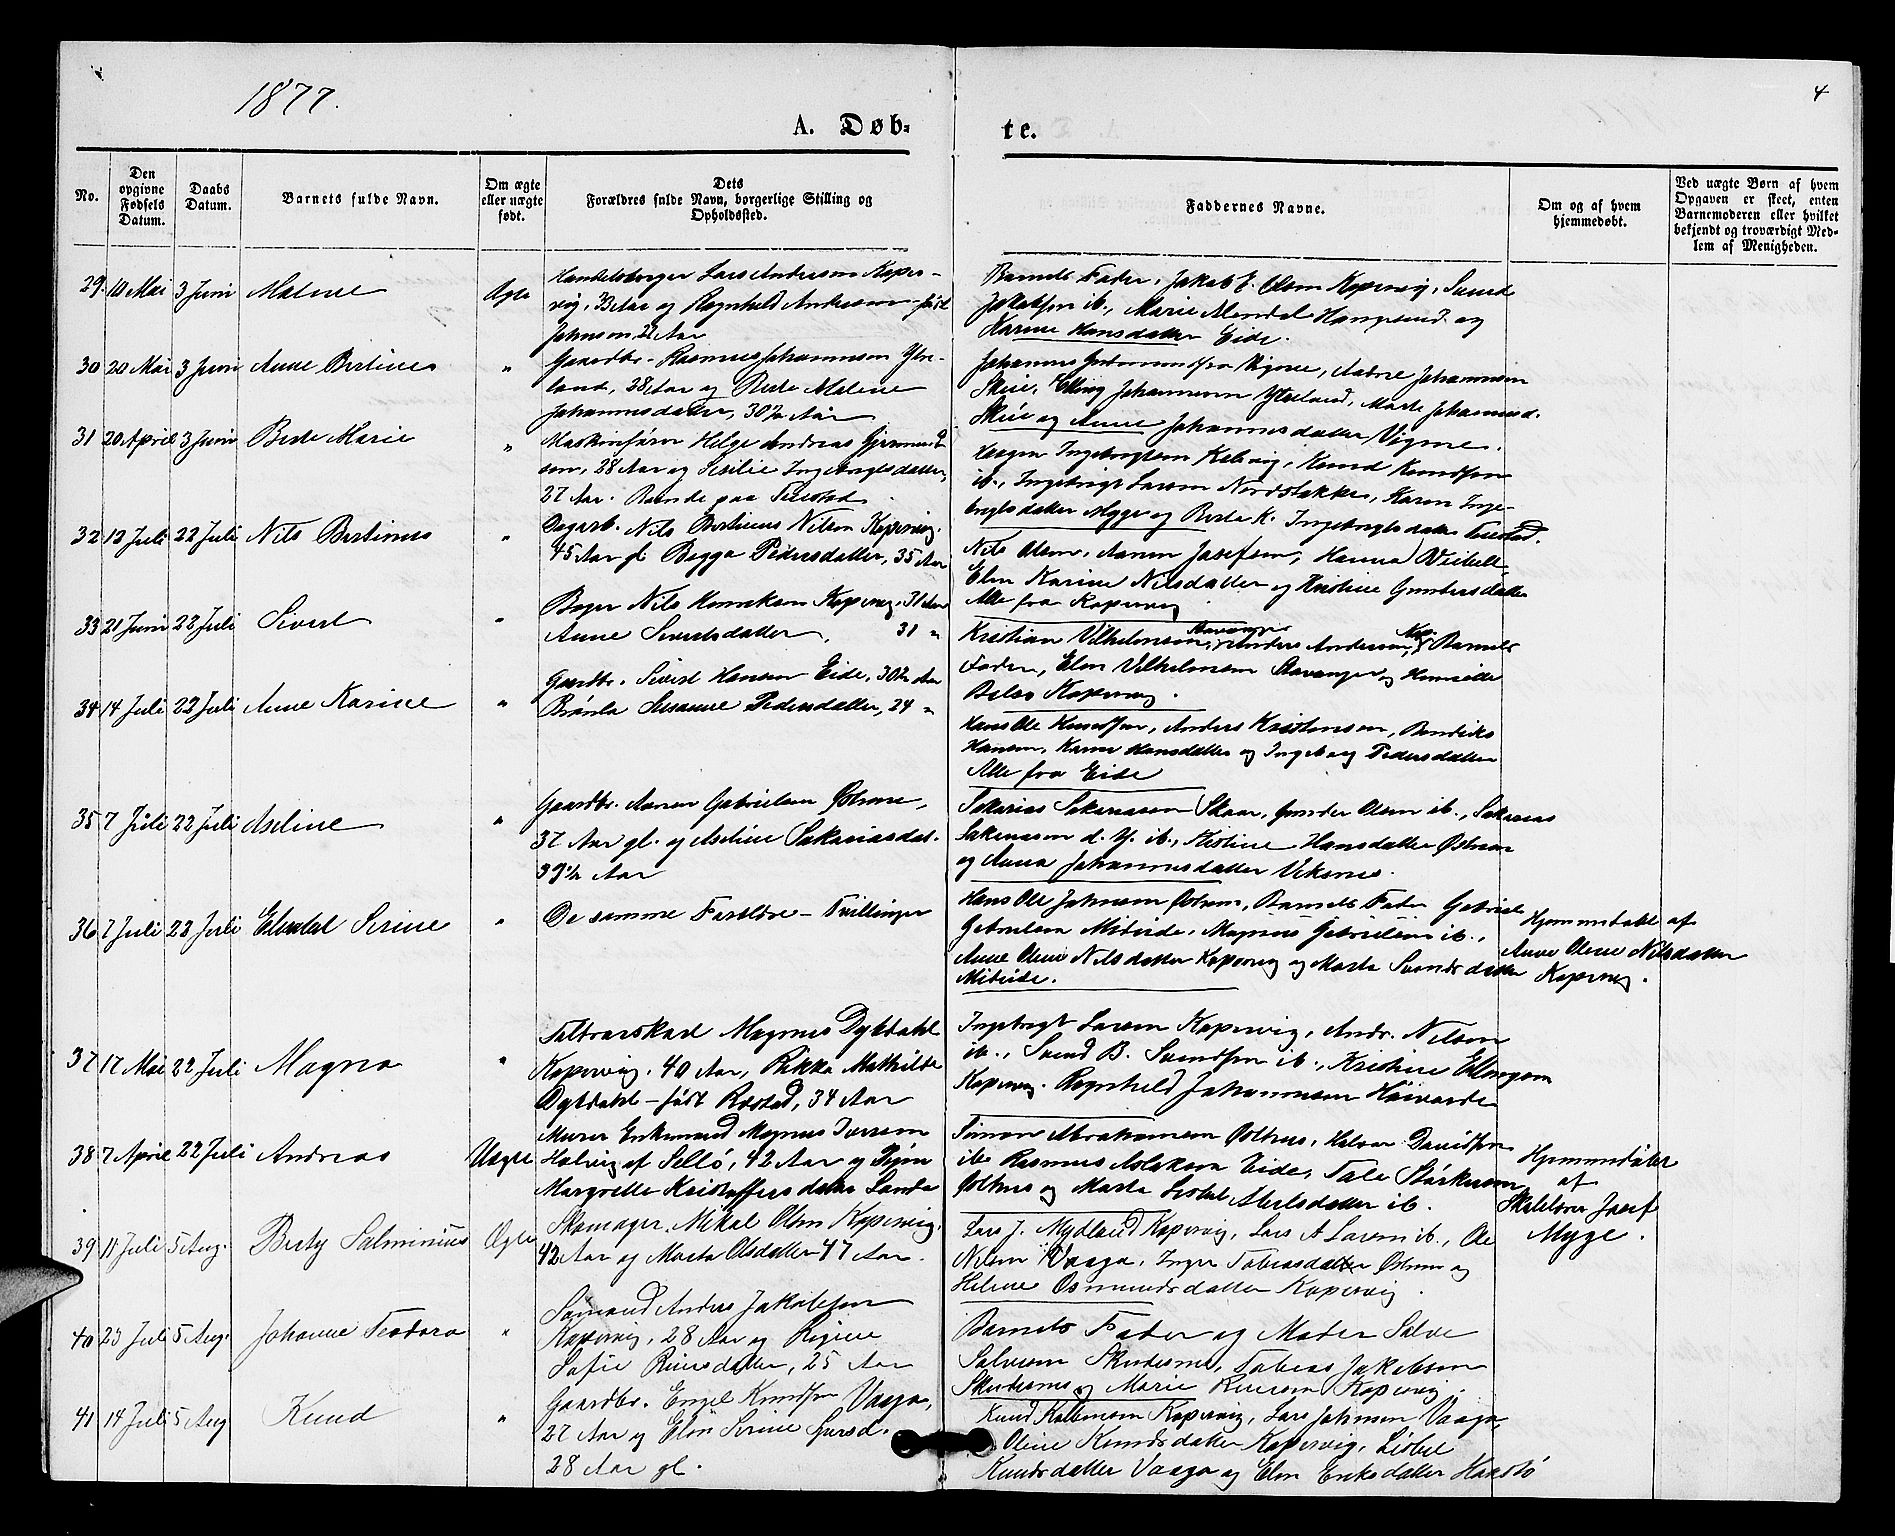 1877.
4
A. Døb-
te.
No.
Den
opgivne
Fødsels
Datum.
Daabs
Datum.
Barnets fulde Navn.
Om ægte
eller uægte
født.
Dets
Forældres fulde Navn, borgerlige Stilling og
Opholdssted.
Faddernes Navne.
Om og af hvem
hjemmedøbt.
Ved uægte Børn af hvem
Opgaven er skeet, enten
Barnemoderen eller hvilket
bekjendt og troværdigt Med-
lem af Menigheden.
29. 10 Mai 3 Juni Malene Ægte
Handelsborger Lars Andersen Koper-
vig, 33 Aar og Ragnhild Andersen født
Johnsen, 22 Aar
Barnets Fader, Jakob E. Olsen Kopervig, Svend
Jakobsen ib., Marie Hougesund og
Karine Hansdatter Eide.
30 20 Mai 3 Juni Anne Bertine "
Gaardbr. Rasmus Johannesen Ytre-
land, 28 Aar og Berte Malene
Johannesdatter, 30½ Aar
Johannes Gudmundsen Vigene, Johannesen
Skeie, Elling Johannesen Ytreland, Marte Johannesd.
Skeie og Anne Johannesdatter Vigene.
31 20 April 3 Juni Berte Marie "
Maskinfører Helge Andreas
sen, 28 Aar og Sesilie Ingebrigtsdatter,
27 Aar. Boende paa
Ingebrigtsen Kolvig, Knud Knudsen
ib., Ingebrigt Larsen Nordstokke, Karen Inge-
brigtsdatter Mygge og Berte K. Ingebrigtsdatter
32 12 Juli 22 Juli Nils Bertinus "
Dagarb. Nils Bertinus Nilsen Kopervig,
45 Aar gl. Begga Pedersdatter, 35 Aar
Nils Olsen, Aanen Josefsen, Hanna
Elen Karine Nilsdatter og Kristine Gundersdatter
Alle fra Kopervig
33 21 Juni 22 Juli Sivert "
Bager Nils Henriksen Kopervig, 31 Aar
Anne Sivertsdatter, 31 "
Kristian Vilhelmsen Stavanger, Anders Andersen, Kop. Barnets
Fader, Elen Vilhelmsen Stavanger og
Kopervig.
34 14 Juli 22 Juli Anne Karine "
Gaardbr. Sivert Hansen Eide, 30½ Aar
Brønla Susanne Pedersdatter, 24 "
Hans Ole Knudsen, Anders Kristensen, Bendiks
Hansen, Karen Hansdatter og Ingeborg Pedersdatter
Alle fra Eide
35 7 Juli 22 Juli Aseline "
Gaardbr. Aanen Gabrielsen Østrem,
37 Aar gl. og Aseline Sakariasdat.
39½ Aar
Sakarias Sakariasen Skaar, Gunder Olsen ib., Sakarias
Sakariasen d. y. ib., Kristine Hansdatter Østrem
og Anna Johannesdatter Veksnes.
36 7 Juli 22 Juli Serine "
De samme Forældre - Tvillinger
Hans Ole Johnsen Østrem, Barnets Fader Gabriel
Gabrielsen Midteide, Magnus Gabrielsen ib.,
Anne Oline Nilsdatter Kopervig og Marta Svendsdatter
Midteide.
Hjemmedøbt af
Anne Oline Nilsdatter
Kopervig.
37 17 Mai 22 Juli Magna "
Toldvæskarl Magnus Dybdahl
Kopervig, 40 Aar, Rikka Mathilde
Dybdahl - født Røstad, 34 Aar
Ingebrigt Larsen Kopervig, Andr. Nilsen
ib., Svend B. Svendsen ib., Kristine Ellingsen
Kopervig. Ragnhild Johannesen Haavarde
38 7 April 22 Juli Andreas Uægte
Murer Enkemand Magnus Iversen
Halvig af Sellø, 42 Aar og Pige
Margrethe Kristoffersdatter Sande
Simon Abrahamsen Østhus, Halvor Davidsen
ib. Rasmus Aslaksen Eide, Tale
Østhus og Marta Lisbet ib.
Hjemmedøbt
af
Skolelærer Josef
Myge.
39 11 Juli 5 Aug. Berty Salminius Ægte
Skomager Mikal Olsen Kopervig,
42 Aar og Marta Olsdatter 47 Aar.
Lars J. Mydland Kopervig, Lars A Larsen ib., Ole
Nilsen Vaaga, Inger Tobiasdatter Østrem og
Helene Osmundsdatter Kopervig.
40 23 Juli 5 Aug. Johanne Teodora "
Sømand Anders Jakobsen
Kopervig, 28 Aar og Regine
Sofie Reiersdatter, 25 Aar
Barnets Fader og Moder Salve
Salvesen Skudesnes, Tobias Jakobsen
Skudesnes og Marie Reiersen Kopervig.
41 14 Juli 5 Aug Knud "
Gaardbr. Engel Knudsen Vaaga,
27 Aar og Elen Serine
28 Aar gl.
Knud Kopervig, Lars Johnsen Vaaga,
Oline Knudsdatter Kopervig, Lisbet
Knudsdatter Vaaga og Elen Eriksdatter